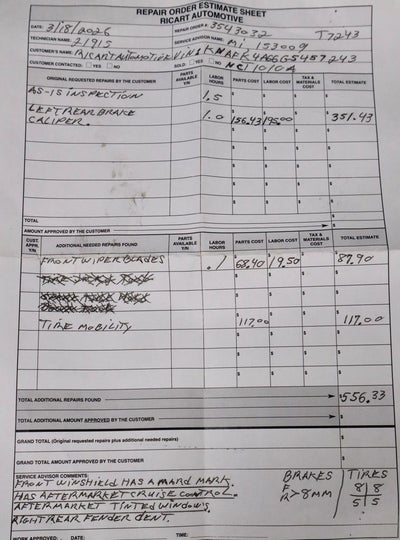 REPAIR ORDER ESTIMATE SHEET
RICART AUTOMOTIVE
DATE: 3/18/2026 REPAIR ORDER #: 3543032 T7243
TECHNICIAN NAME: 21915 SERVICE ADVISOR NAME: M1, 153009
CUSTOMER'S NAME: RICART AUTOMOTIVE VIN: KNAFK4A66G5457243
CUSTOMER CONTACTED: YES NO SOLD: YES NO NC1010A
ORIGINAL REQUESTED REPAIRS BY THE CUSTOMER PARTS AVAILABLE Y/N LABOR HOURS PARTS COST LABOR COST TAX & MATERIALS COST TOTAL ESTIMATE
AS-IS INSPECTION 1.5 $ $ $ $
LEFT REAR BRAKE
CALIPER. 1.0 $156.43 $195.00 $ $351.43
TOTAL
AMOUNT APPROVED BY THE CUSTOMER $
CUST. APPR. Y/N ADDITIONAL NEEDED REPAIRS FOUND PARTS AVAILABLE Y/N LABOR HOURS PARTS COST LABOR COST TAX & MATERIALS COST TOTAL ESTIMATE
FRONT WIPER BLADES .1 $68.40 $19.50 $ $87.90
TIRE MOBILITY $117.00 $ $ $117.00
TOTAL ADDITIONAL REPAIRS FOUND $556.33
TOTAL ADDITIONAL AMOUNT APPROVED BY THE CUSTOMER $
GRAND TOTAL (Original requested repairs plus additional needed repairs) $
GRAND TOTAL AMOUNT APPROVED BY THE CUSTOMER $
SERVICE ADVISOR COMMENTS: BRAKES TIRES
FRONT WINDSHIELD HAS A MARD MARK. F 8 8
HAS AFTERMARKET CRUISE CONTROL. R > 8MM 5 5
AFTERMARKET TINTED WINDOWS.
RIGHT REAR FENDER DENT.
WORK APPROVED: DATE: TIME: